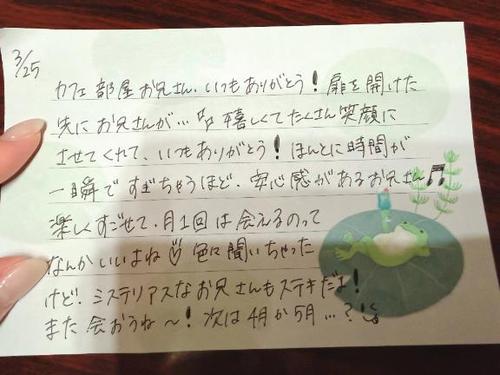 3/25
カフェ部屋お兄さん、いつもありがとう!扉を開けた
先にお兄さんが…嬉しくてたくさん笑顔に
させてくれて、いつもありがとう!ほんとに時間が
一瞬ですぎちゃうほど、安心感があるお兄さん♬
楽しくすごせて、月1回は会えるのって
なんかいいよね♡色々聞いちゃった
けど、ミステリアスなお兄さんもステキだよ!
また会おうね〜!次は4月か5月…?!